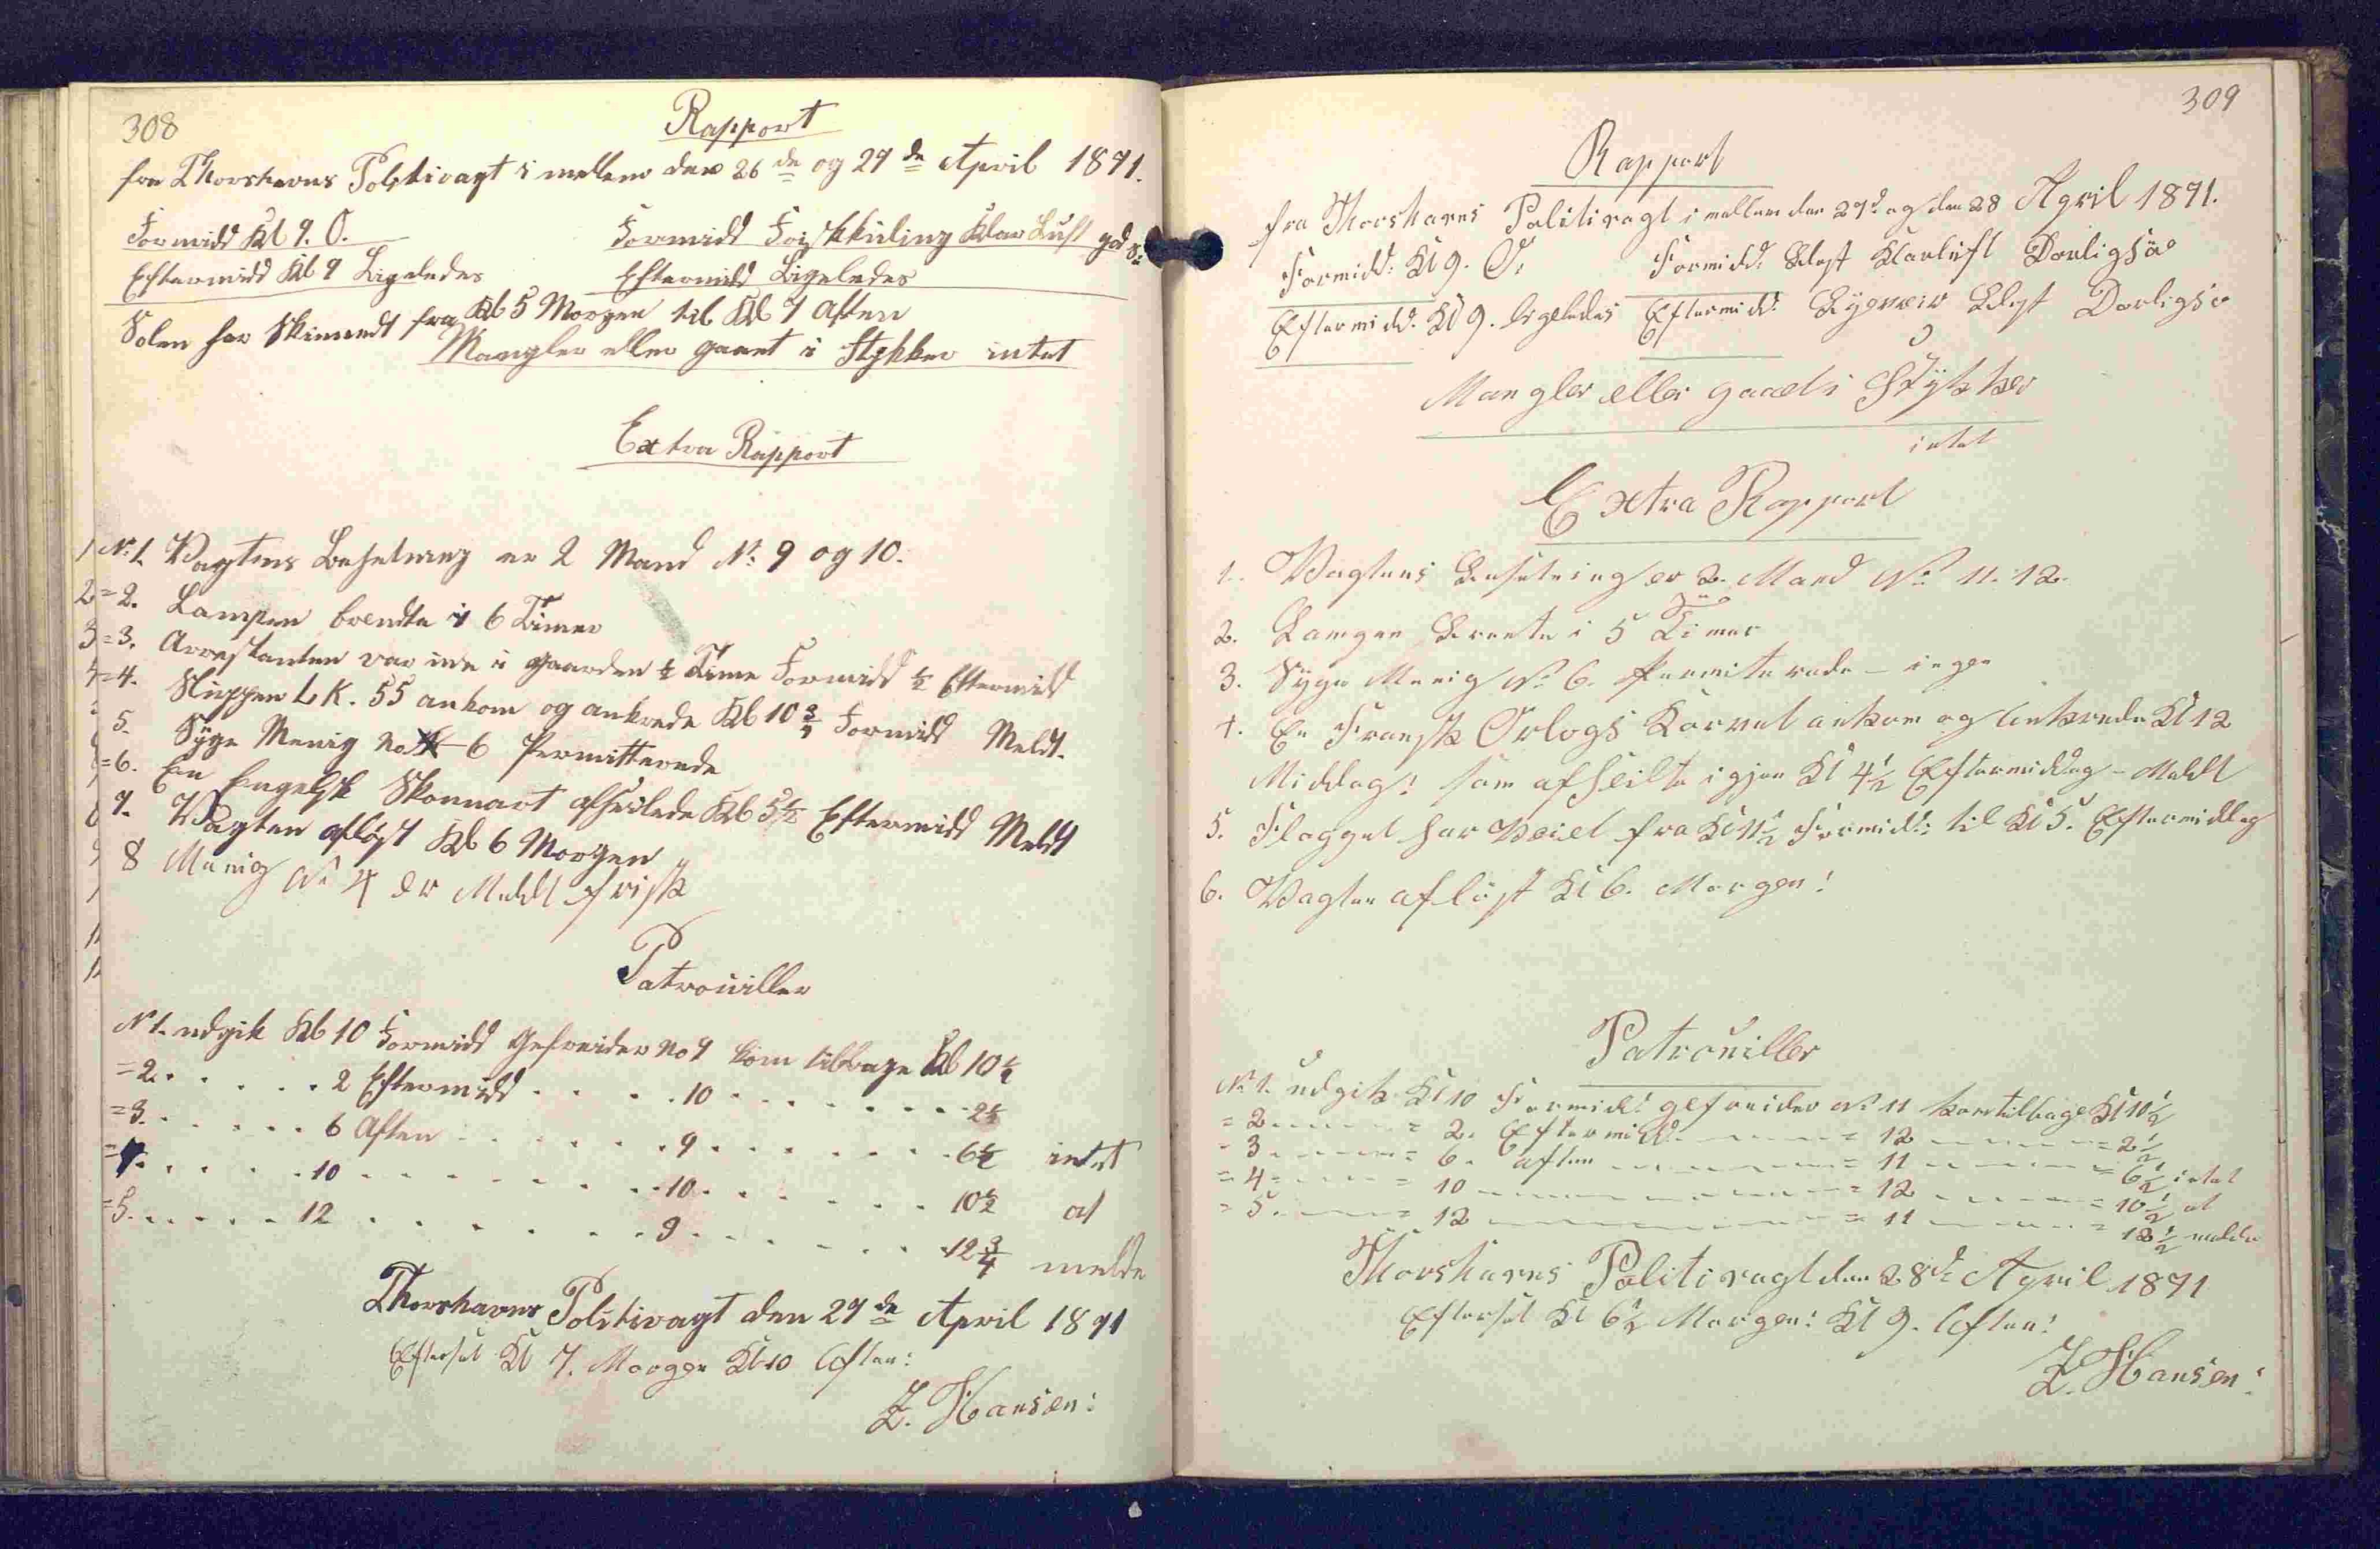 308
Rapport
fra Thorshavns Politivagt i mellem den 26de og 27de April 1871.
Formidd Kl 9. O.
Formidd Friskkuling Klar Luft god
Eftermidd Kl 9 Ligeledes
Eftermidd Ligeledes
Solen har Skinnendt fra Kl 5 Morgen til Kl 7 Aften
Mangler eller gaaet i Stykker intet
Extra Rapport
No 1. Vagtens Besetning er 2 Mand No 9 og 10.
= 2. Lampen brendte i 6 Timer
= 3. Arrestanten var ude i Gaarden ½ Time Formidd ½ Eftermidd
= 4. Sluppen L K. 55 ankom og ankrede Kl 10¾ Formidd Meldt.
5. Syge Menig No 6 Permitterede
= 6. En Engelsk Skonnart afseilede Kl 5½ Eftermidd Meldt
7. Vagten afløst Kl 6 Morgen
8 Menig No 4 er Meldt frisk
Patrouiller
No 1. udgik Kl 10 Formidd Gefreider No 9 kom tilbage Kl 10½
= 2. . . . . . 2 Eftermidd . . . . 10 . . . . . . . . 2½
= 3. . . . . . 6 Aften . . . . . . 9 . . . . . . . . 6½ intet
= 4. . . . . . 10 . . . . . . . . 10 . . . . . . . 10½ at
= 5. . . . . . 12 . . . . . . . . 9 . . . . . . . 12¾ melde
Thorshavns Politivagt den 27de April 1871
Efterset Kl 7. Morgen Kl 10 Aften:
Z. Hansen:
309
Rapport
fra Thorshavns Politivagt i mellem den 27d. og den 28 April 1871.
Formidd: Kl 9. O. Formidd: Blest Klarluft Daarligsöe
Eftermidd: Kl 9. ligeledes Eftermidd: Blest Daarligsö
Mangler eller gaaet i Stykker
intet
Extra Rapport
1. Vagtens Besetning er 2. Mand No 11. 12.
2. Lampen Brente i 5 Timer
3. Syge Menig No 6. Permiterede – ingen
4. En Fransk Orlogs Korvet ankom og Ankrede Kl 12
Middag: som afseilte igjen Kl 4½ Eftermiddag – Meldt
5. Flagget har Veiet fra Kl 11½ Formidd: til Kl 5. Eftermiddag
6. Vagten afløst Kl 6. Morgen!
Patrouiller
No 1. udgik Kl 10 Formidd: gefreider No 11 kom tilbage Kl 10½
= 2 - - - - = 2. Eftermidd. - - - - = 12 - - - - = 2½
= 3 - - - - = 6. aften - - - - = 11 - - - - = 6½ intet
= 4 - - - - = 10 - - - - = 12 - - - - = 10½ at
= 5. - - - - = 12 - - - - = 11 - - - - = 12½ melde
Thorshavns Politivagt den 28de April 1871
Efterset Kl 6½ Morgen: Kl 9. Aften:
Z. Hansen: